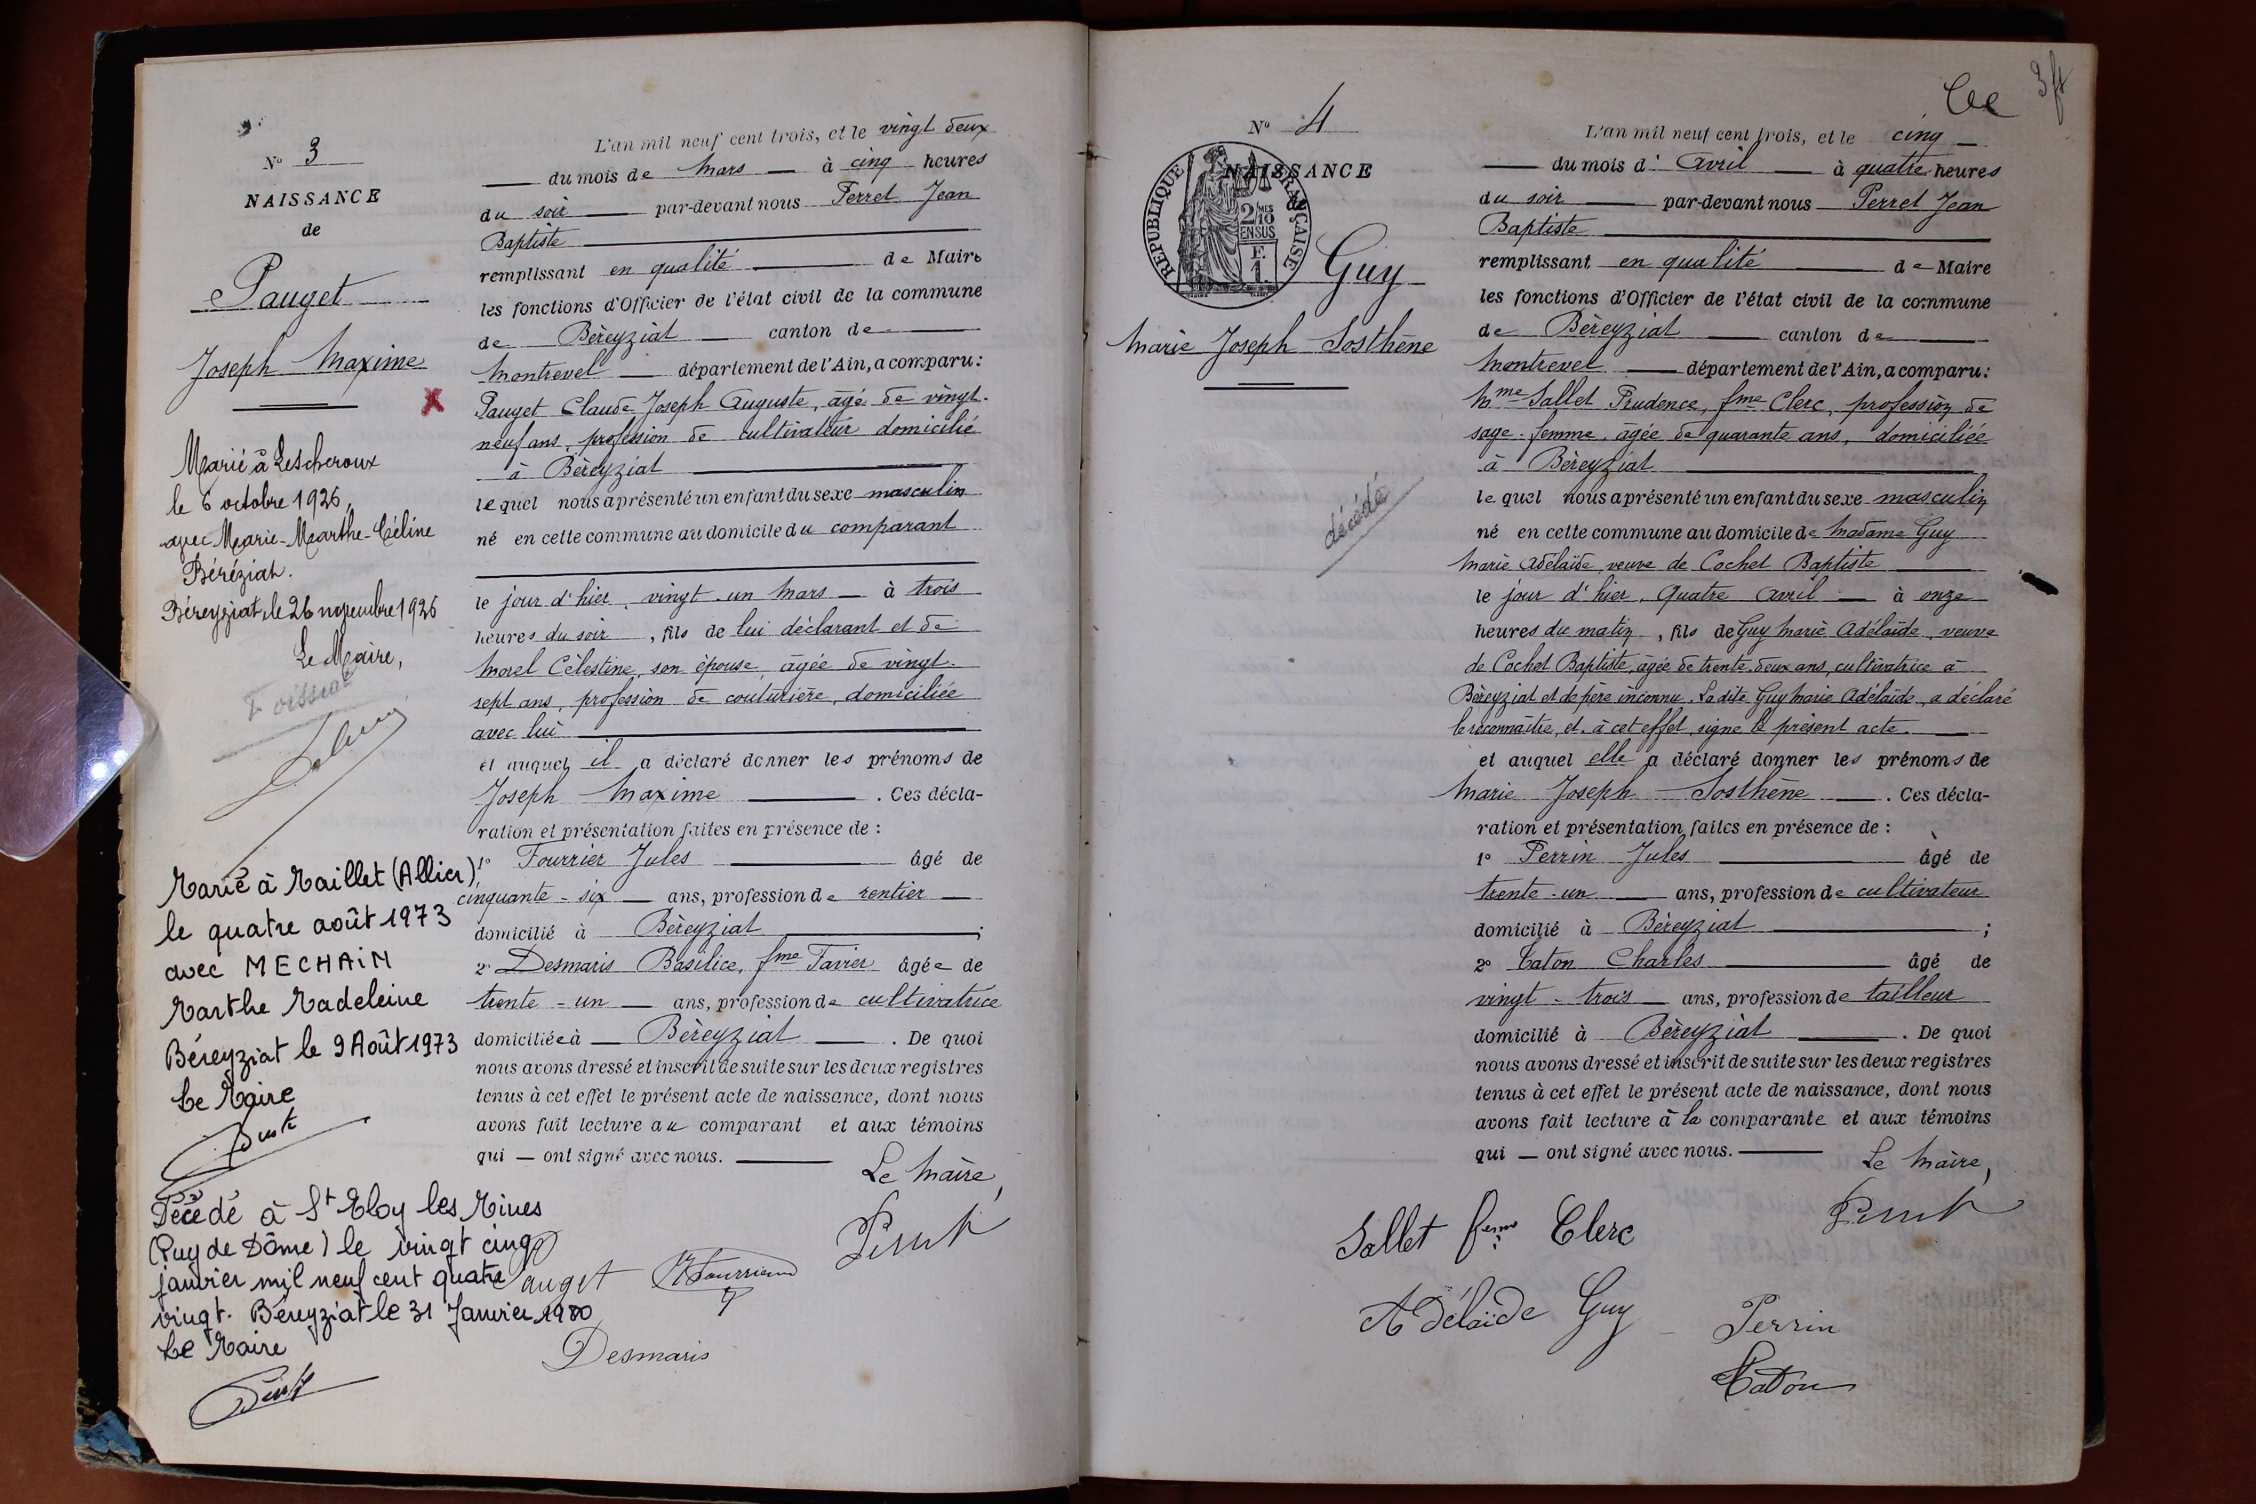 N° 3
NAISSANCE
de
Pauget
Joseph Maxime
Marié à Lescheroux
le 6 octobre 1926,
avec Marie-Marthe-Céline
Béréziat.
Béreyziat, le 26 novembre 1926
Le Maire,
Marié à Maillet (Allier)
le quatre août 1973
avec MECHAIN
Marthe Madeleine
Béreyziat le 9 Août 1973
Le Maire
Décédé à St Eloy les Mines
(Puy de Dôme) le vingt cinq
janvier mil neuf cent quatre
vingt. Béreyziat le 31 Janvier 1980
Le Maire
L'an mil neuf cent trois, et le vingt deux
du mois de Mars à cinq heures
du soir par-devant nous Perret Jean
Baptiste
remplissant en qualité de Maire
les fonctions d'Officier de l'état civil de la commune
de Béreyziat canton de
Montrevel département de l'Ain, a comparu:
Pauget Claude Joseph Auguste, âgé de vingt-
neuf ans, profession de cultivateur domicilié
à Béreyziat
lequel nous a présenté un enfant du sexe masculin
né en cette commune au domicile du comparant
le jour d'hier, vingt-un Mars à trois
heures du soir, fils de lui déclarant et de
Morel Célestine, son épouse, âgée de vingt-
sept ans, profession de couturière, domiciliée
avec lui
et auquel il a déclaré donner les prénoms de
Joseph Maxime. Ces décla-
ration et présentation faites en présence de :
1° Fourrier Jules âgé de
cinquante-six ans, profession de rentier
domicilié à Béreyziat ;
2° Desmaris Basilice, fme Favier âgée de
trente-un ans, profession de cultivatrice
domiciliée à Béreyziat. De quoi
nous avons dressé et inscrit de suite sur les deux registres
tenus à cet effet le présent acte de naissance, dont nous
avons fait lecture au comparant et aux témoins
qui ont signé avec nous.
Le Maire,
Perret
Pauget Fourrier
Desmaris
N° 4
NAISSANCE
de
RÉPUBLIQUE FRANÇAISE
2/10 MES
EN SUS
F.
1
Guy
Marie Joseph Sosthène
décédé
L'an mil neuf cent trois, et le cinq
du mois d'Avril à quatre heures
du soir par-devant nous Perret Jean
Baptiste
remplissant en qualité de Maire
les fonctions d'Officier de l'état civil de la commune
de Béreyziat canton de
Montrevel département de l'Ain, a comparu:
Mme Sallet Prudence, fme Clerc, profession de
sage-femme, âgée de quarante ans, domiciliée
à Béreyziat
lequel nous a présenté un enfant du sexe masculin
né en cette commune au domicile de Madame Guy
Marie Adélaïde, veuve de Cochet Baptiste
le jour d'hier, Quatre Avril à onze
heures du matin, fils de Guy Marie Adélaïde, veuve
de Cochet Baptiste, âgée de trente-deux ans, cultivatrice à
Béreyziat et de père inconnu. La dite Guy Marie Adélaïde, a déclaré
le reconnaître, et, à cet effet, signe le présent acte.
et auquel elle a déclaré donner les prénoms de
Marie Joseph Sosthène. Ces décla-
ration et présentation faites en présence de :
1° Perrin Jules âgé de
trente-un ans, profession de cultivateur
domicilié à Béreyziat ;
2° Caton Charles âgé de
vingt-trois ans, profession de tailleur
domicilié à Béreyziat. De quoi
nous avons dressé et inscrit de suite sur les deux registres
tenus à cet effet le présent acte de naissance, dont nous
avons fait lecture à la comparante et aux témoins
qui ont signé avec nous.
Le Maire,
Perret
Sallet feme Clerc
Adélaïde Guy
Perrin
Caton